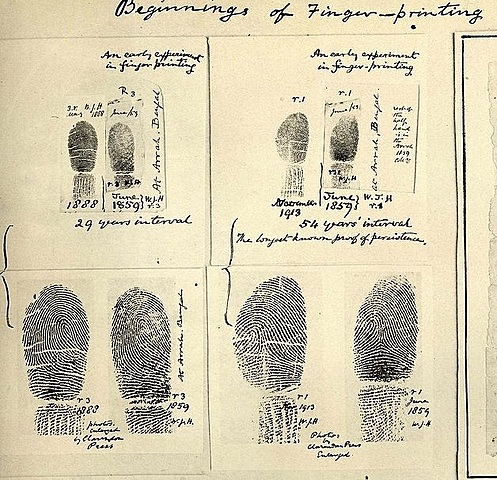 Beginnings of Finger-printing
An early experiment
in finger printing
R 3
W.J.H
1888
June/59
r.3 W.J.H
At Arrah. Bengal
1888
June
1859
W.J.H
r.3
29 years interval
An early experiment
in finger-printing
r.1
r.1
June/59
W.J.H
At Arrah. Bengal
November
1913
June
1859
W.J.H
r.1
54 years' interval
The longest known proof of persistence.
r 3
1888
photos
enlarged
by Clarendon
Press
At Arrah. Bengal
r 3
1859
W.J.H.
r.1
1913
W.J.H
Photos
by
Clarendon Press
Enlarged.
r 1
June
1859
W.J.H